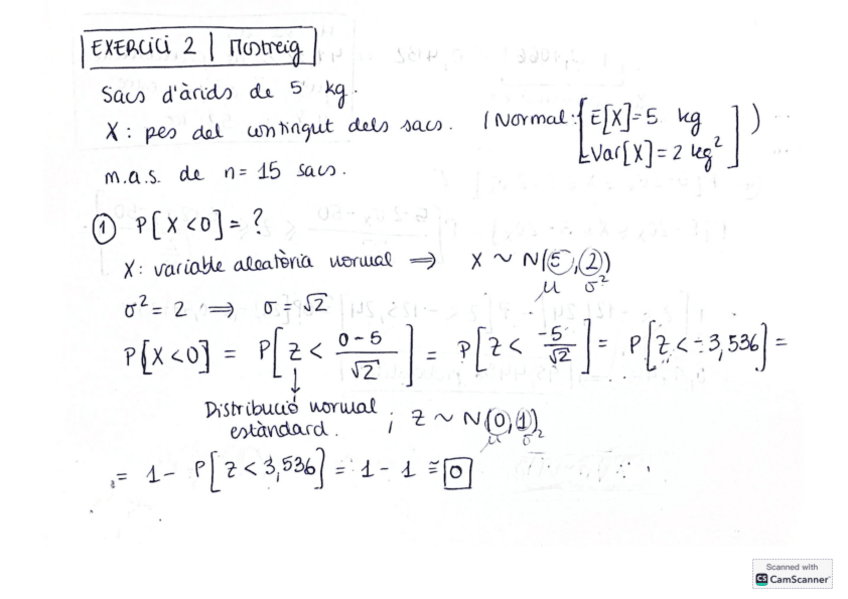 EXERCICI 2 | Mostreig
Sacs d'àrids de 5 kg.
X: pes del contingut dels sacs. (Normal: [E[X]=5 kg
Var[X]=2 kg²])
m.a.s. de n=15 sacs.
① P[X<0]=?
X: variable aleatòria normal ⇒ X ~ N(5,2)
μ σ²
σ²=2 ⇒ σ=√2
P[X<0] = P[Z < (0-5)/√2] = P[Z < -5/√2] = P[Z < -3,536] =
↓
Distribució normal estàndard. ; Z ~ N(0,1)
μ σ²
= 1 - P[Z<3,536] = 1 - 1 ≅ 0
Scanned with
CS CamScanner